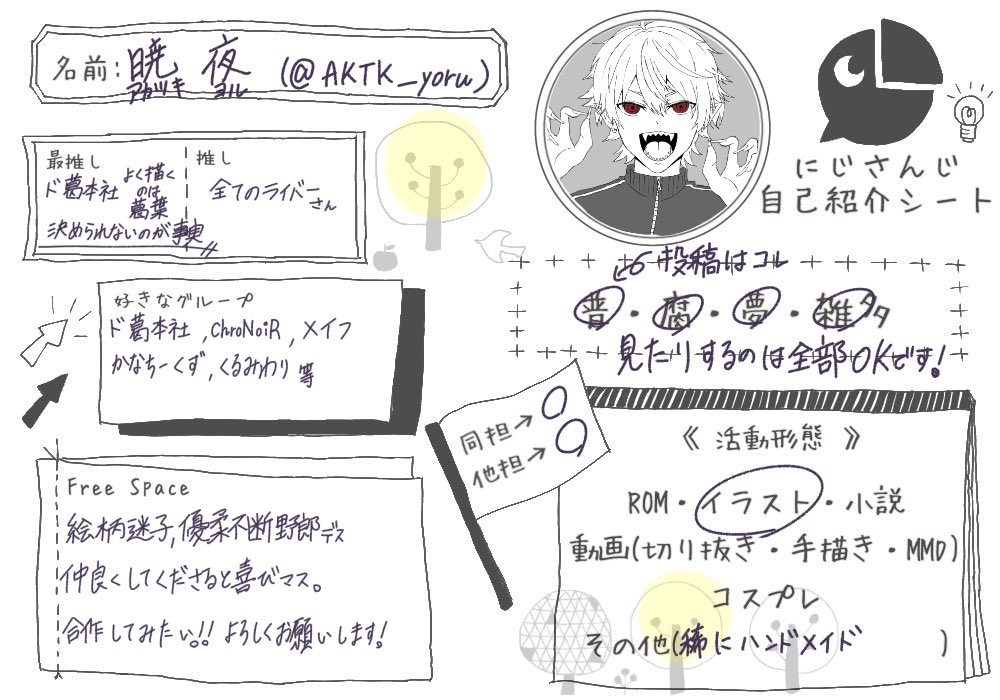 名前:暁 夜 (@AKTK_yoru)
アカツキ ヨル
にじさんじ
自己紹介シート
最推し
ド葛本社 よく描く
のは
葛葉
決められないのが事実
推し
全てのライバー
さん
投稿はコレ
普・腐・夢・雑多
見たりするのは全部OKです!
好きなグループ
ド葛本社 , ChroNoiR , メイフ
かなちーくず , くるみわり 等
同担→○
他担→○
《 活動形態 》
ROM・イラスト・小説
動画(切り抜き・手描き・MMD)
コスプレ
その他(稀にハンドメイド )
Free Space
絵柄迷子,優柔不断野郎デス
仲良くしてくださると喜びマス。
合作してみたい!! よろしくお願いします!